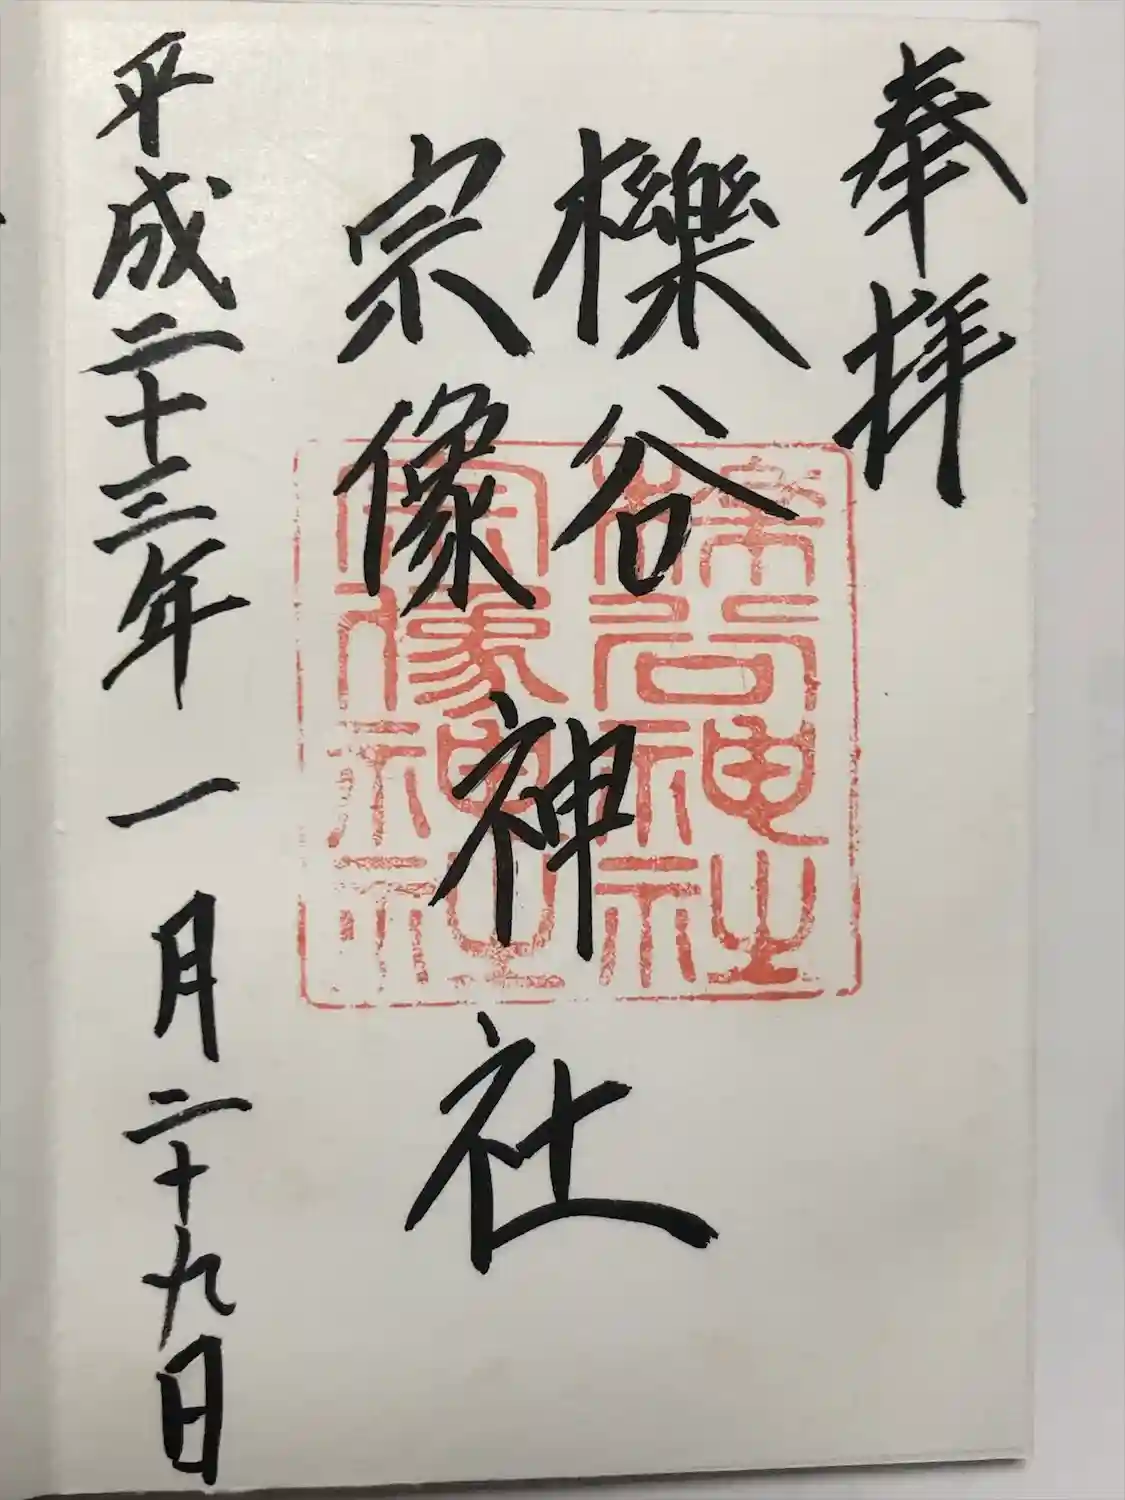 奉拝
櫟谷
宗像
神社
平成二十三年一月二十九日
櫟谷神社
宗像神社